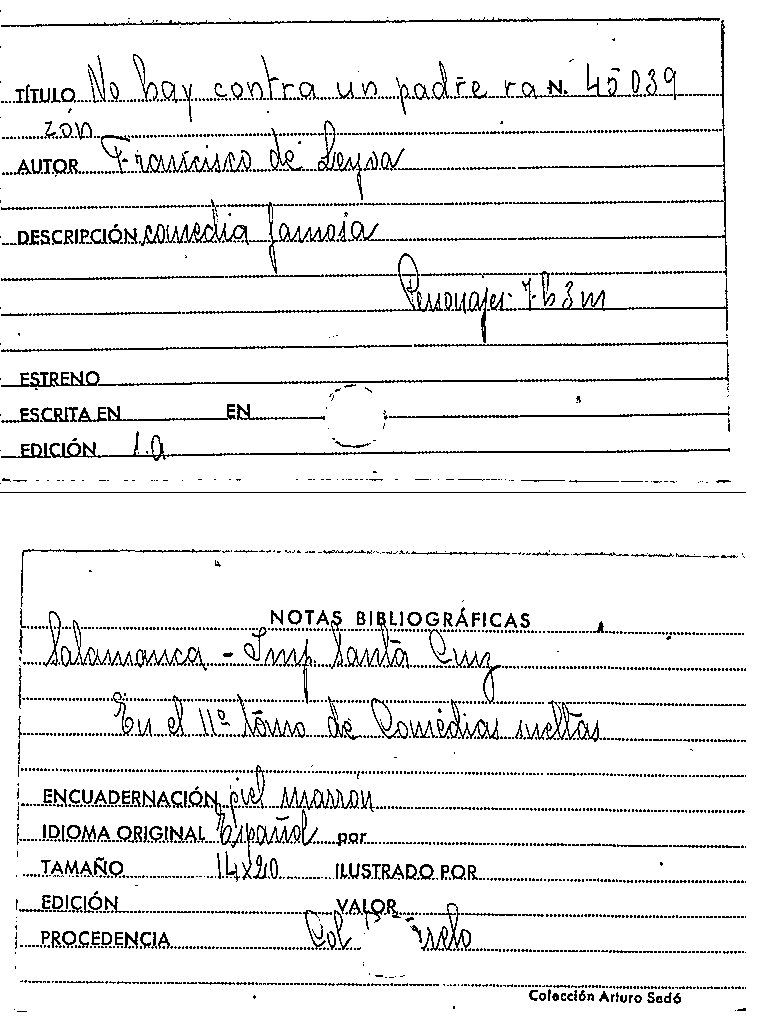 TÍTULO No hay contra un padre ra N. 45039
zón
AUTOR Francisco de Leyva
DESCRIPCIÓN comedia famosa
Personajes: 7 h 3 m
ESTRENO
ESCRITA EN EN
EDICIÓN 1.a
NOTAS BIBLIOGRÁFICAS
Salamanca - Imp. Santa Cruz
En el 11º tomo de Comedias sueltas
ENCUADERNACIÓN piel marrón
IDIOMA ORIGINAL Español por
TAMAÑO 14x20 ILUSTRADO POR
EDICIÓN VALOR
PROCEDENCIA Col
Colección Arturo Sedó